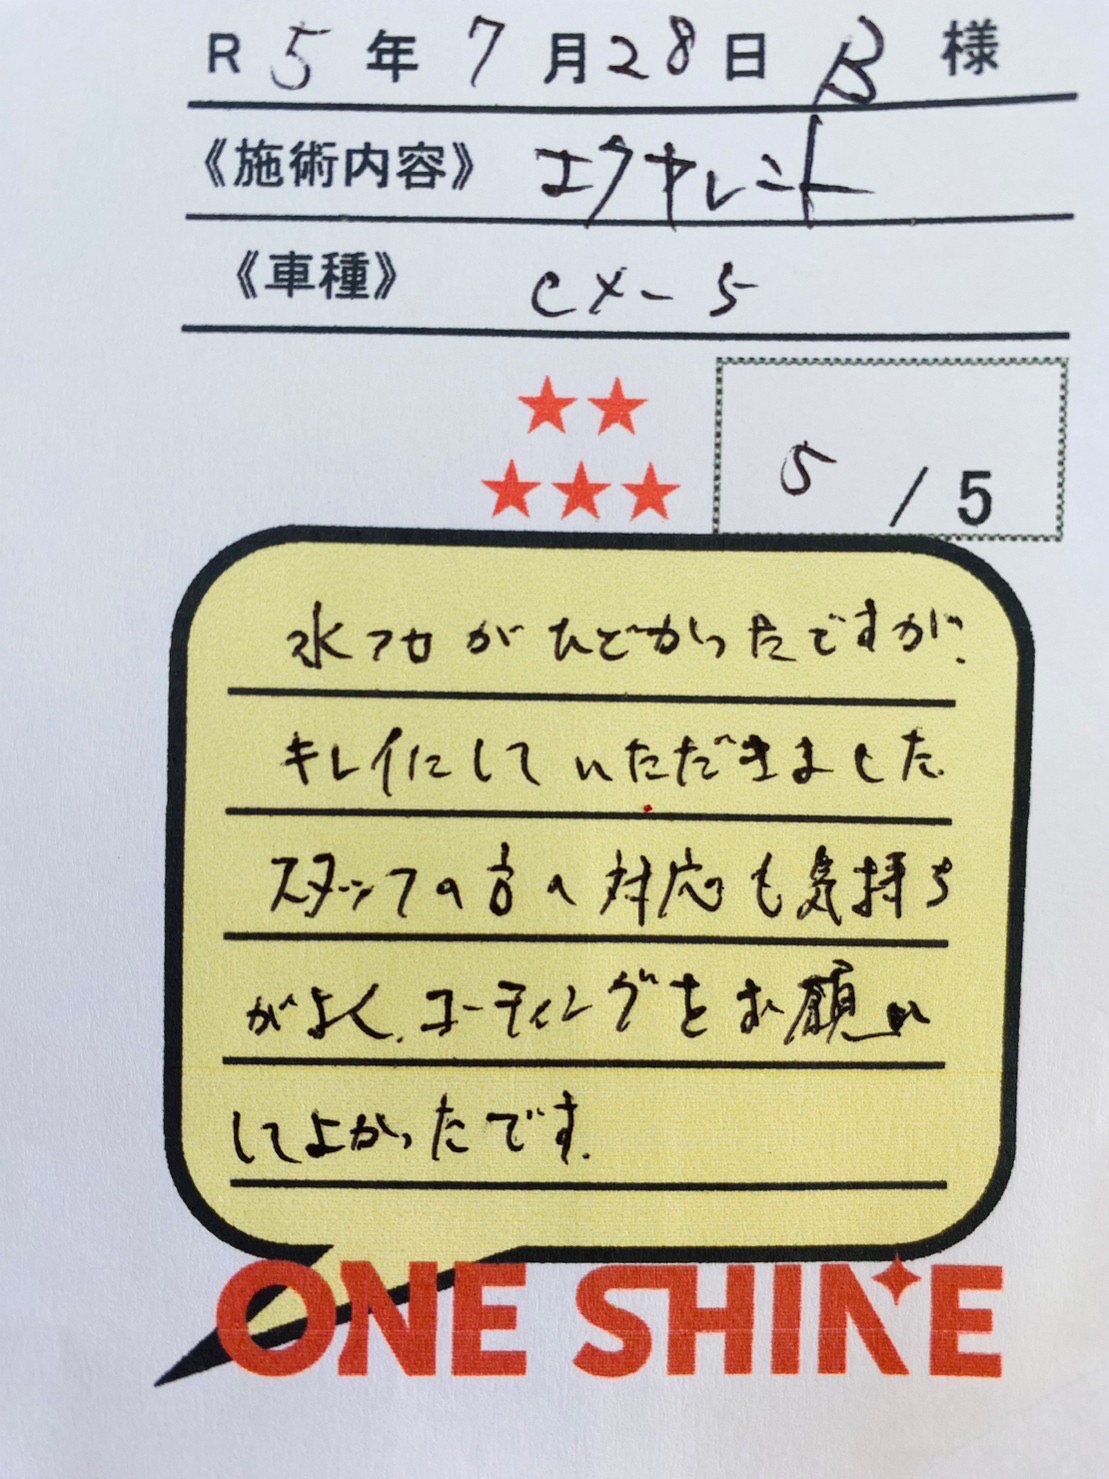 R 5年 7月28日 B 様
《施術内容》 エクセレント
《車種》 CX-5
5 / 5
水アカがひどかったですが、
キレイにしていただきました
スタッフの方の対応も気持ち
がよく、コーティングをお願い
してよかったです.
ONE SHINE